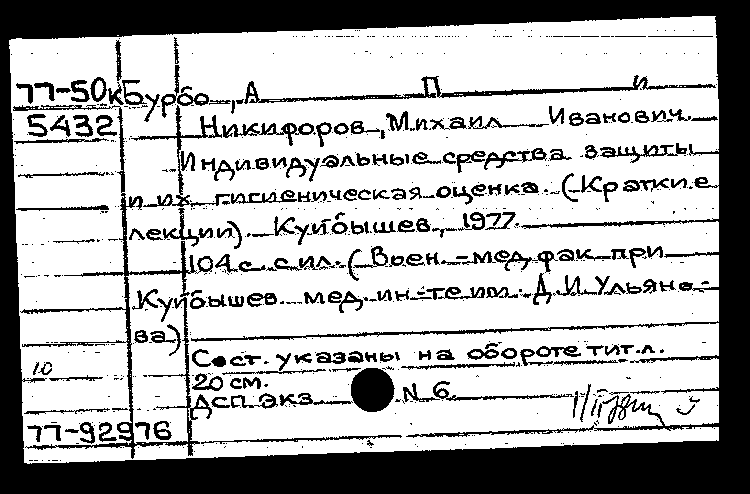 77-50к Бурбо, А П и
5432 Никифоров, Михаил Иванович.
Индивидуальные средства защиты
и их гигиеническая оценка. (Краткие
лекции). Куйбышев, 1977.
104 с. с ил. (Воен.-мед. фак. при
Куйбышев. мед. ин-те им. Д. И. Ульяно-
ва)
Сост. указаны на обороте тит. л.
10
20 см.
ДСП. экз. N 6.
77-92976